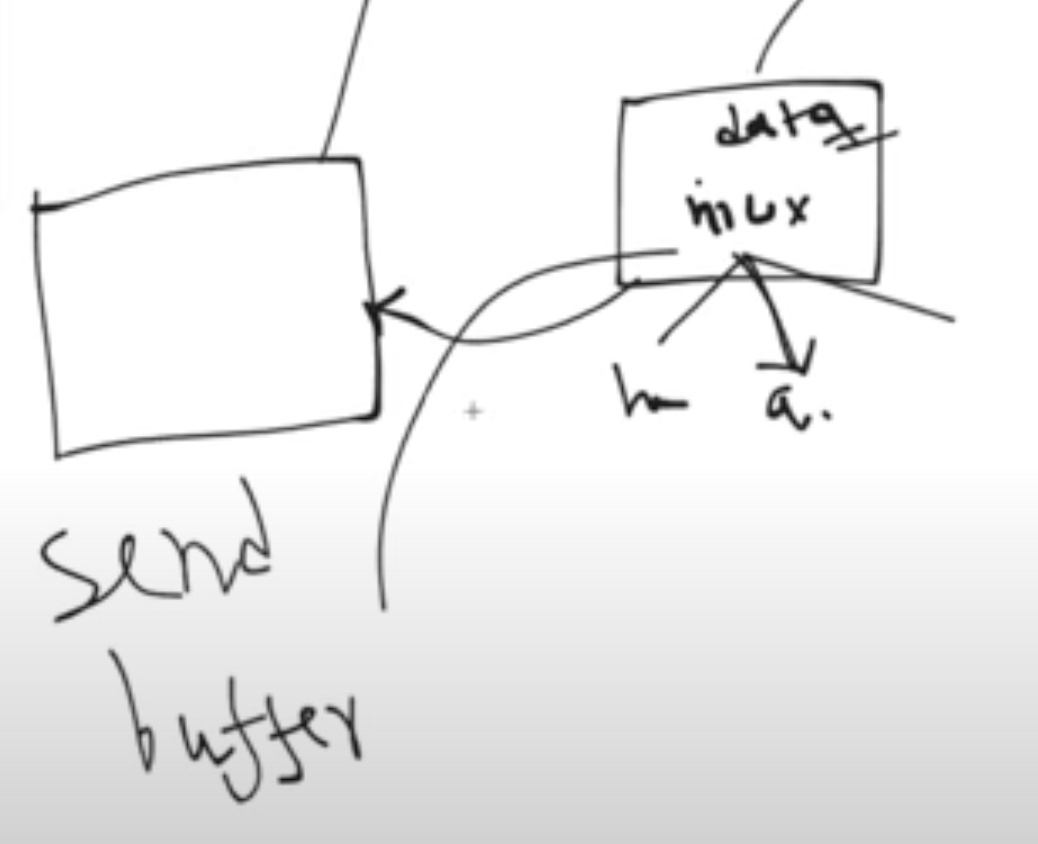 data
mux
a.
send
buffer